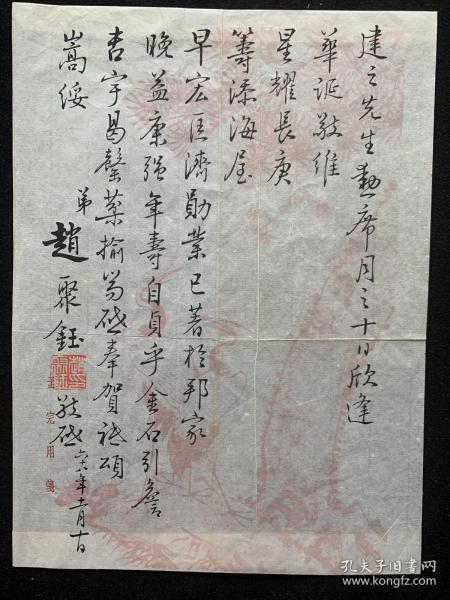 建之先生勳席月之十日欣逢
華誕敬維
星耀長庚
籌添海屋
早宏匡濟勛業已著於邦家
晚益康強年壽自貞乎金石引詹
吉宇曷罄葵掄專啟奉賀祗頌
嵩綏
弟趙聚鈺敬啟 六六年十一月十日
完用箋
孔夫子旧书网
www.kongfz.com